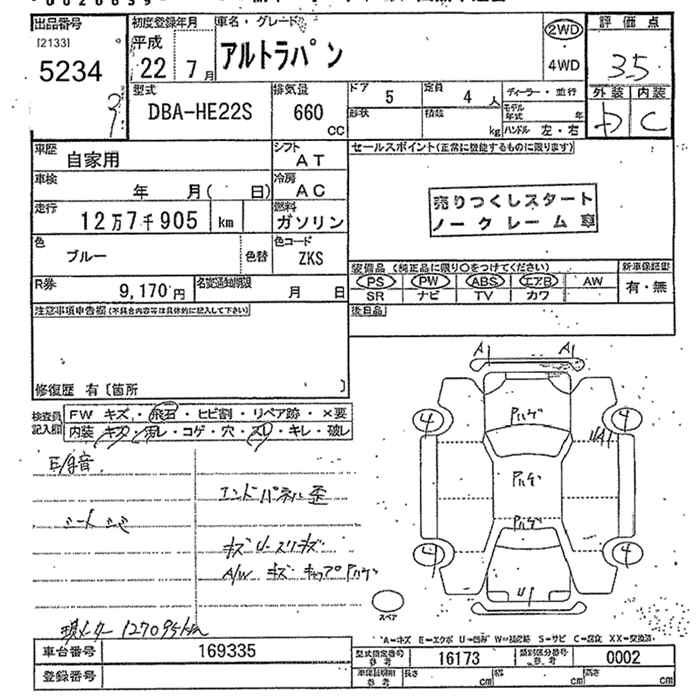 出品番号 初度登録年月 車名・グレード 2WD 評価点
[2133] 5234 平成 22年 7月 アルトラパン 4WD 3.5
型式 排気量 ドア 5 定員 4人 ディーラー・並行 外装 内装
DBA-HE22S 660 CC 形状 積載 kg モデル年式 年 D C
ハンドル 左・右
車歴 自家用 シフト AT セールスポイント(正常に機能するものに限ります)
車検 年 月( 日) 冷房 AC
売りつくしスタート
ノークレーム車
走行 12万7千905 km 燃料 ガソリン
色 ブルー 色替 色コード ZKS
装備品 (純正品に限り○をつけてください) 新車保証書
PS PW ABS エアB AW 有・無
SR ナビ TV カワ
R券 9,170円 名変通知期限 月 日
注意事項申告欄(不具合内容等は具体的に記入して下さい) 後日品
修復歴 有〔箇所 〕
検査員記入欄 FW キズ・飛石・ヒビ割・リペア跡・×要
内装・キズ・汚レ・コゲ・穴・スレ・キレ・破レ
A1 A1
4 4
UA1
4 4
U1
エンドパネル歪
シート シミ
A/W キズ キャップ
現メーター 127095km
スペア
A=キズ E=エクボ U=凹み W=補修跡 S=サビ C=腐食 XX=交換済
車台番号 169335 型式指定番号 参考 16173 類別区分番号 参考 0002
登録番号 車検証明用 参考 長さ cm 幅 cm 高さ cm